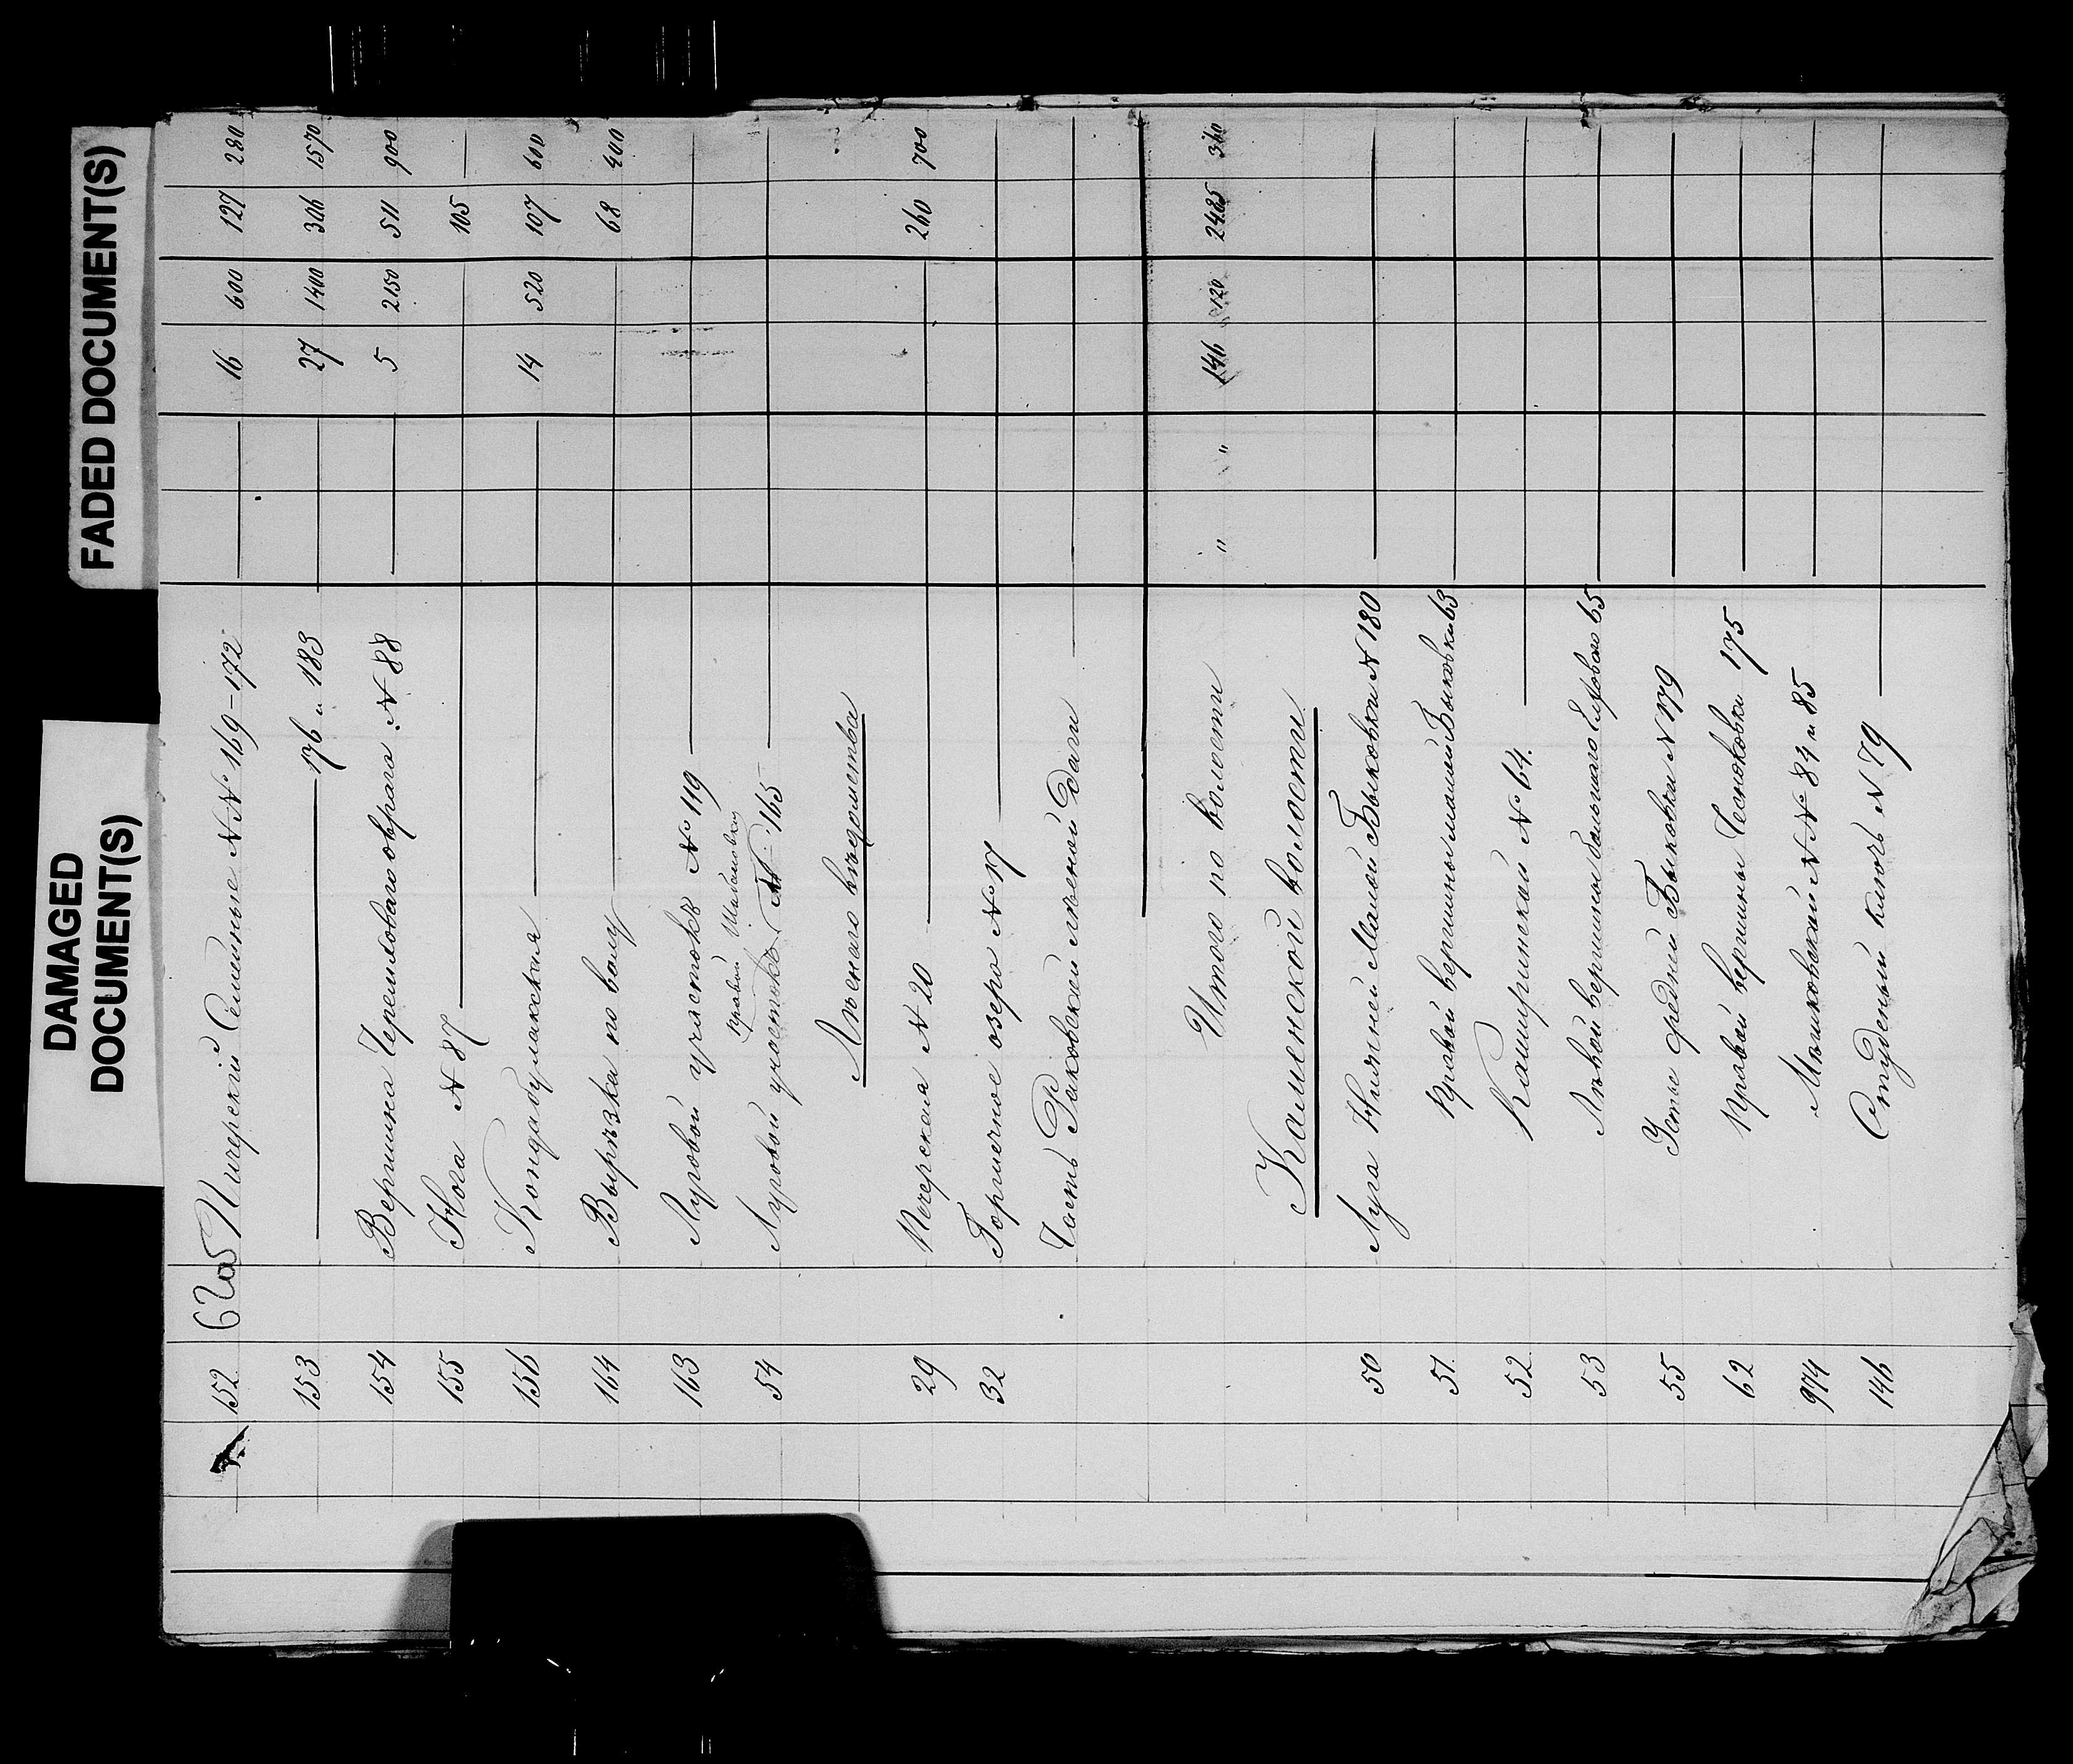 FADED DOCUMENT(S)
DAMAGED
DOCUMENT(S)
152 Пичерскій Семенные №№ 169-172 16 600 127 280
153 — 176 и 183 27 1400 306 1570
154 Вершина Черемховаго оврага № 88 5 2150 511 900
155 Нога № 87 105 —
156 Кондабулакская 14 520 107 600
164 Вырѣзка по валу 68 400
163 Луговой участокъ № 119
правой Шабановки
54 Луговой участокъ № 165
Лѣснаго вѣдомства
29 Печерская № 20 260 700
32 Горшечное озеро № 17
Часть Раковской лѣсной дачи
Итого по волости " " 146 120 2485 360
Каменской волости
50 Луга Нижней Малой Быковки № 180
51 Правой вершины малой Быковки 63
52 Каширинской № 64.
53 Лѣвой вершины большаго 65
55 Устье средней Быковки № 179
62 Правой вершины Чесноковки 175
974 №№ 84 и 85
146 Студеный ключъ № 79